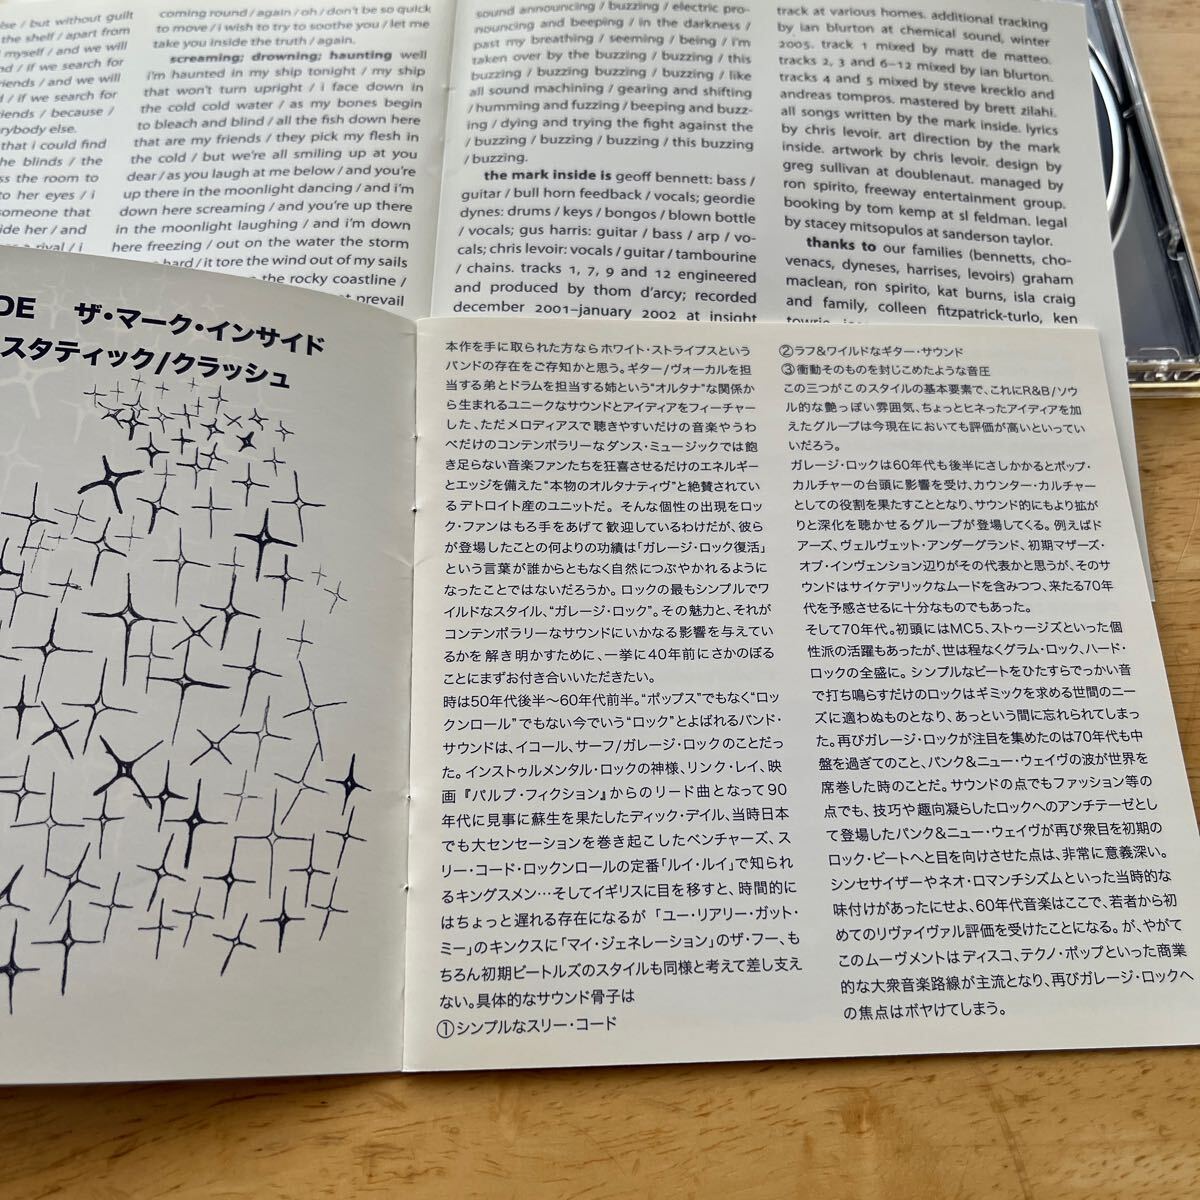 else / but without guilt
the shelf / apart from
myself / and we will
nd / if we search for
friends / and we will
d / if we search for
friends / because /
erybody else.
that i could find
he blinds / the
ss the room to
to her eyes / i
someone that
ide her / and
a rival / i
coming round / again / oh / don't be so quick
to move / i wish to try to soothe you / let me
take you inside the truth / again.
screaming; drowning; haunting well
i'm haunted in my ship tonight / my ship
that won't turn upright / i face down in
the cold cold water / as my bones begin
to bleach and blind / all the fish down here
that are my friends / they pick my flesh in
the cold / but we're all smiling up at you
dear / as you laugh at me below / and you're
up there in the moonlight dancing / and i'm
down here screaming / and you're up there
in the moonlight laughing / and i'm down
here freezing / out on the water the storm
hard / it tore the wind out of my sails
the rocky coastline /
prevail
sound announcing / buzzing / electric pro-
nouncing and beeping / in the darkness /
past my breathing / seeming / being / i'm
taken over by the buzzing / buzzing / this
buzzing / buzzing buzzing / buzzing / like
all sound machining / gearing and shifting
/ humming and fuzzing / beeping and buzz-
ing / dying and trying the fight against the
/ buzzing / buzzing / buzzing / this buzzing
/ buzzing.
the mark inside is geoff bennett: bass /
guitar / bull horn feedback / vocals; geordie
dynes: drums / keys / bongos / blown bottle
/ vocals; gus harris: guitar / bass / arp / vo-
cals; chris levoir: vocals / guitar / tambourine
/ chains. tracks 1, 7, 9 and 12 engineered
and produced by thom d'arcy; recorded
december 2001–january 2002 at insight
track at various homes. additional tracking
by ian blurton at chemical sound, winter
2005. track 1 mixed by matt de matteo.
tracks 2, 3 and 6–12 mixed by ian blurton.
tracks 4 and 5 mixed by steve krecklo and
andreas tompros. mastered by brett zilahi.
all songs written by the mark inside. lyrics
by chris levoir. art direction by the mark
inside. artwork by chris levoir. design by
greg sullivan at doublenaut. managed by
ron spirito, freeway entertainment group.
booking by tom kemp at sl feldman. legal
by stacey mitsopulos at sanderson taylor.
thanks to our families (bennetts, cho-
venacs, dyneses, harrises, levoirs) graham
maclean, ron spirito, kat burns, isla craig
and family, colleen fitzpatrick-turlo, ken
DE ザ・マーク・インサイド
スタティック/クラッシュ
本作を手に取られた方ならホワイト・ストライプスという
バンドの存在をご存知かと思う。ギター/ヴォーカルを担
当する弟とドラムを担当する姉という“オルタナ”な関係か
ら生まれるユニークなサウンドとアイディアをフィーチャー
した、ただメロディアスで聴きやすいだけの音楽やうわ
べだけのコンテンポラリーなダンス・ミュージックでは飽
き足らない音楽ファンたちを狂喜させるだけのエネルギー
とエッジを備えた“本物のオルタナティヴ”と絶賛されてい
るデトロイト産のユニットだ。そんな個性の出現をロッ
ク・ファンはもろ手をあげて歓迎しているわけだが、彼ら
が登場したことの何よりの功績は「ガレージ・ロック復活」
という言葉が誰からともなく自然につぶやかれるように
なったことではないだろうか。ロックの最もシンプルでワ
イルドなスタイル、“ガレージ・ロック”。その魅力と、それが
コンテンポラリーなサウンドにいかなる影響を与えてい
るかを解き明かすために、一挙に40年前にさかのぼる
ことにまずお付き合いいただきたい。
時は50年代後半～60年代前半。“ポップス”でもなく“ロッ
クンロール”でもない今でいう“ロック”とよばれるバンド・
サウンドは、イコール、サーフ/ガレージ・ロックのことだっ
た。インストゥルメンタル・ロックの神様、リンク・レイ、映
画『パルプ・フィクション』からのリード曲となって90
年代に見事に蘇生を果たしたディック・デイル、当時日本
でも大センセーションを巻き起こしたベンチャーズ、ス
リー・コード・ロックンロールの定番「ルイ・ルイ」で知られ
るキングスメン…そしてイギリスに目を移すと、時間的に
はちょっと遅れる存在になるが「ユー・リアリー・ガット・
ミー」のキンクスに「マイ・ジェネレーション」のザ・フー、も
ちろん初期ビートルズのスタイルも同様と考えて差し支え
ない。具体的なサウンド骨子は
①シンプルなスリー・コード
②ラフ&ワイルドなギター・サウンド
③衝動そのものを封じこめたような音圧
この三つがこのスタイルの基本要素で、これにR&B/ソウ
ル的な艶っぽい雰囲気、ちょっとヒネったアイディアを加
えたグループは今現在においても評価が高いといってい
いだろう。
ガレージ・ロックは60年代も後半にさしかかるとポップ・
カルチャーの台頭に影響を受け、カウンター・カルチャー
としての役割を果たすこととなり、サウンド的にもより拡が
りと深化を聴かせるグループが登場してくる。例えばド
アーズ、ヴェルヴェット・アンダーグランド、初期マザーズ・
オブ・インヴェンション辺りがその代表かと思うが、そのサ
ウンドはサイケデリックなムードを含みつつ、来たる70年
代を予感させるに十分なものでもあった。
そして70年代。初頭にはMC5、ストゥージズといった個
性派の活躍もあったが、世は程なくグラム・ロック、ハード・
ロックの全盛に。シンプルなビートをひたすらでっかい音
で打ち鳴らすだけのロックはギミックを求める世間のニー
ズに適わぬものとなり、あっという間に忘れられてしまっ
た。再びガレージ・ロックが注目を集めたのは70年代も中
盤を過ぎてのこと、パンク&ニュー・ウェイヴの波が世界を
席巻した時のことだ。サウンドの点でもファッション等の
点でも、技巧や趣向凝らしたロックへのアンチテーゼとし
て登場したパンク&ニュー・ウェイヴが再び衆目を初期の
ロック・ビートへと目を向けさせた点は、非常に意義深い。
シンセサイザーやネオ・ロマンチシズムといった当時的な
味付けがあったにせよ、60年代音楽はここで、若者から初
めてのリヴァイヴァル評価を受けたことになる。が、やがて
このムーヴメントはディスコ、テクノ・ポップといった商業
的な大衆音楽路線が主流となり、再びガレージ・ロックへ
の焦点はボヤけてしまう。